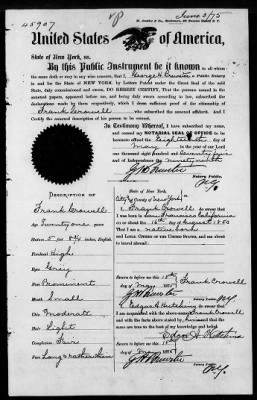 45907
June 3/75
United States of America,
State of New York, ss.
By this Public Instrument be it known to all whom
the same doth or may in any wise concern, that I George H. 
State of NEW YORK, by Letters Patent under the Great Seal of the said
State, duly commissioned and sworn, DO HEREBY CERTIFY, That the persons named in the
annexed papers, appeared before me, and being duly sworn according to law, subscribed the
declarations made by them respectively, which is sufficient proof of the citizenship of
Frank Crowell
In Testimony Whereof, I have subscribed my name,
and caused my NOTARIAL SEAL OF OFFICE to be
hereunto affixed the Eighteenth day of
May in the year of our Lord
one thousand eight hundred and Seventy five
and of Independence the Ninety ninth
Notary Public,
DESCRIPTION OF
Frank Crowell
Age Twenty one years
Stature 5 feet 8 3/4 inches, English.
Forehead High
Eyes Grey
Nose Prominent
Mouth Small
Chin Moderate
Hair Light
Complexion Fair
Face Long & rather thin
State of New York,
City & County of New York
I, Frank Crowell
do swear that I was born in San Francisco California
on or about the 16th day of August 1853
that I am a native born
and LOYAL CITIZEN OF THE UNITED STATES, and about
to travel abroad.
Sworn to before me this 18th
day of May 1875
Frank Crowell
Notary Public
I,
do swear that I am acquainted with the above named Frank Crowell
and with the facts above stated by him and that the same are
true to the best of my knowledge and belief.
Sworn to before me this 18th
day of May 1875